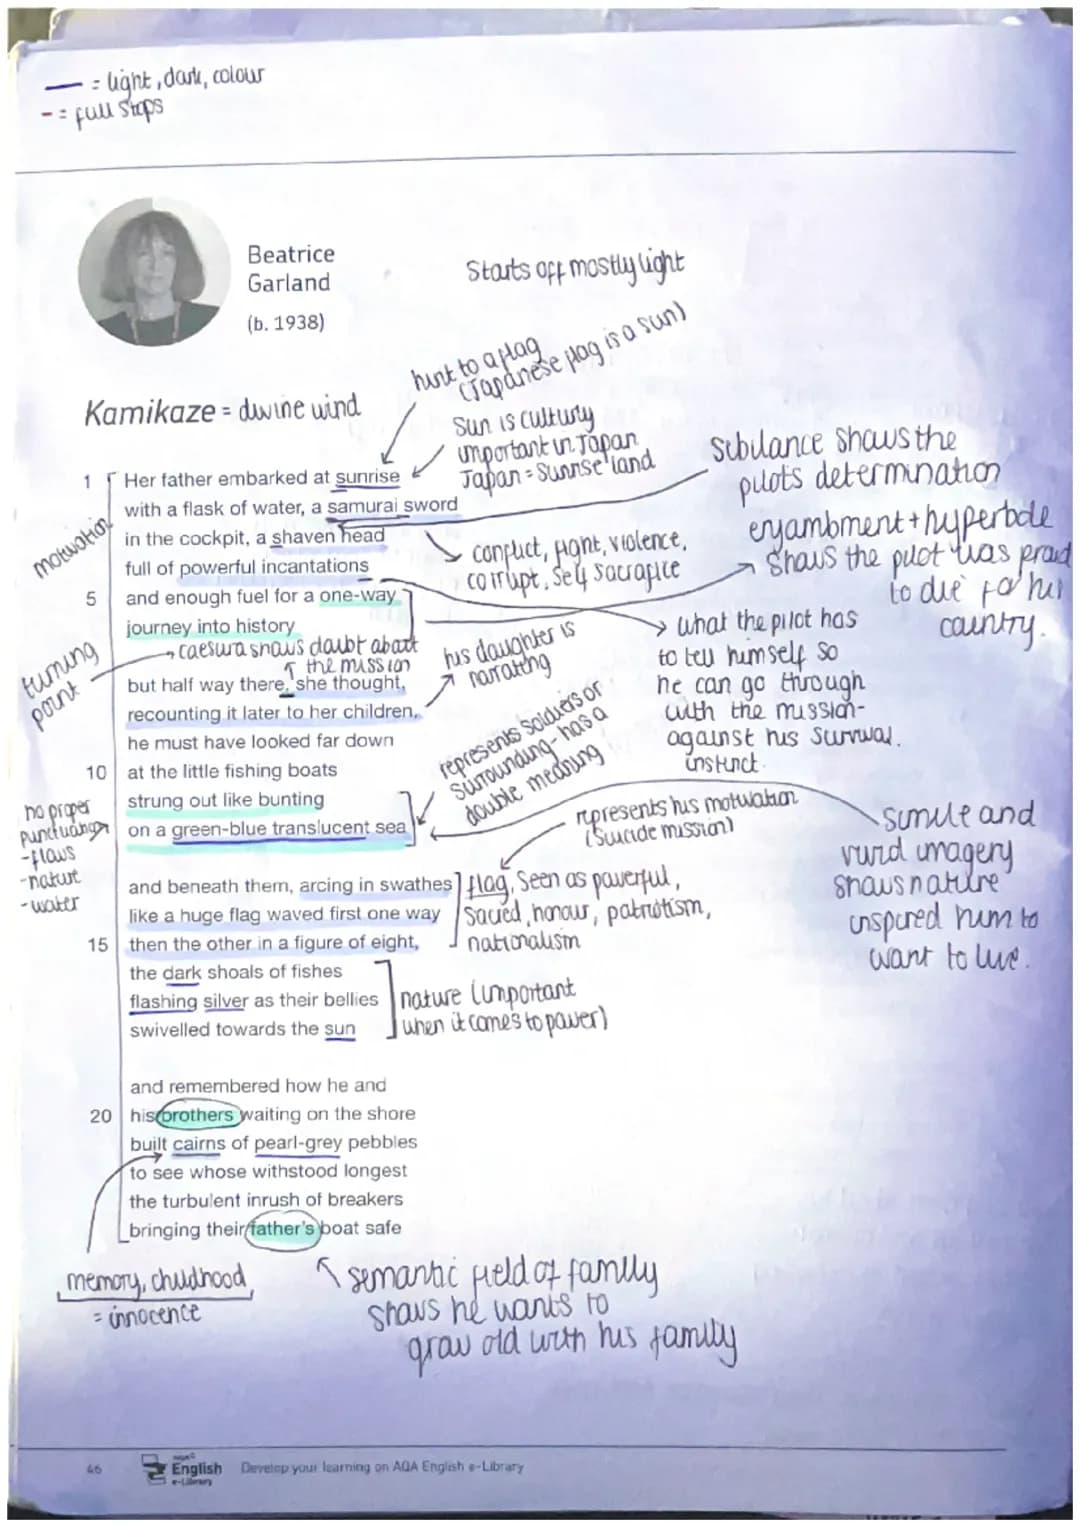 — = light, dark, colour
- = full stops
Beatrice
Garland
(b. 1938)
Starts off mostly light
hint to a flag
(Japanese flag is a sun)
Kamikaze = divine wind
Sun is culturly
important in Japan
Japan = Sunrise land
Sibilance shows the
pilots determination
1 Her father embarked at sunrise
with a flask of water, a samurai sword
in the cockpit, a shaven head
full of powerful incantations
5 and enough fuel for a one-way
journey into history
motivation
conflict, fight, violence,
corrupt, self sacrafice
enjambment + hyperbole
shows the pilot was proud
to die for his
country.
turning
point
caesura shows doubt about
the mission
his daughter is
narrating
what the pilot has
to tell himself so
he can go through
with the mission-
against his survival
instinct.
but half way there, she thought,
recounting it later to her children,
he must have looked far down
10 at the little fishing boats
strung out like bunting
on a green-blue translucent sea
represents soldiers or
surrounding - has a
double meaning
no proper
punctuation
-flows
-nature
-water
represents his motivation
(Suicide mission)
simile and
vivid imagery
shows nature
inspired him to
want to live.
and beneath them, arcing in swathes
like a huge flag waved first one way
15 then the other in a figure of eight,
the dark shoals of fishes
flashing silver as their bellies
swivelled towards the sun
flag, Seen as powerful,
Sacred, honour, patriotism,
nationalism
nature (important
when it comes to power)
and remembered how he and
20 his brothers waiting on the shore
built cairns of pearl-grey pebbles
to see whose withstood longest
the turbulent inrush of breakers
bringing their father's boat safe
memory, childhood
= innocence
semantic field of family
shows he wants to
grow old with his family
46
AQA
English
e-Library
Develop your learning on AQA English e-Library